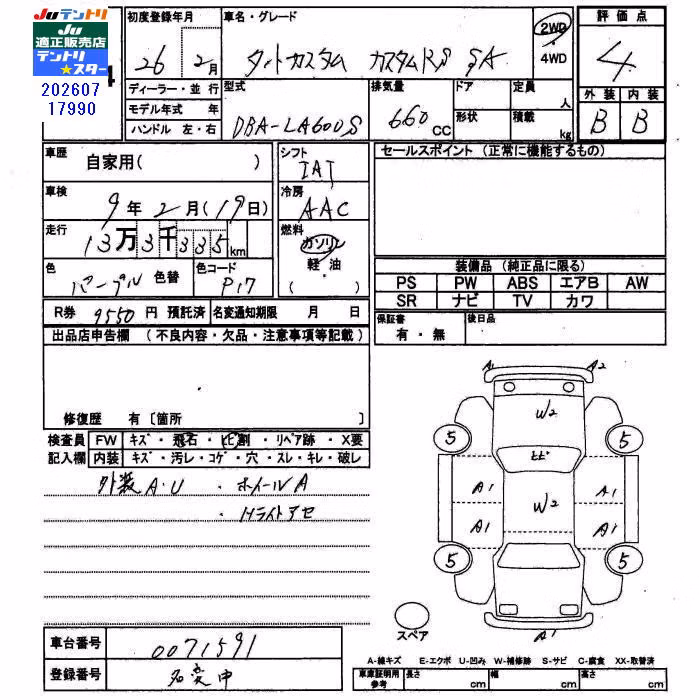 Juテントリ
Ju
適正販売店
テントリ
★スター
202607
17990
4
初度登録年月
26年2月
車名・グレード
タントカスタム カスタムRS SA
2WD
・
4WD
評価点
4
外装 内装
B B
ディーラー・並行
モデル年式 年
ハンドル 左・右
型式
DBA-LA600S
排気量
660 CC
ドア
形状
定員
人
積載
kg
車歴
自家用( )
車検
9年2月(19日)
走行
13万3千335km
色
パープル 色替
色コード
P17
シフト
IAT
冷房
AAC
燃料
ガソリン
軽・油
( )
セールスポイント (正常に機能するもの)
装備品 (純正品に限る)
PS PW ABS エアB AW
SR ナビ TV カワ
保証書
有・無
後日品
R券 9550円 預託済 名変通知期限 月 日
出品店申告欄 (不良内容・欠品・注意事項等記載)
修復歴 有〔箇所 〕
検査員 FW キズ・飛石・ヒビ割・リペア跡・X要
記入欄 内装 キズ・汚レ・コゲ・穴・スレ・キレ・破レ
外装A・U ・ホイールA
・Hライトアセ
A1 A2
W2
5 5
ヒビ
A1 A1
W2
A1 A1
5 5
A1
スペア
車台番号 0071591
登録番号 名変中
A-線キズ E-エクボ U-凹み W-補修跡 S-サビ C-腐食 XX-取替済
車庫証明用
参考
長さ cm 幅 cm 高さ cm